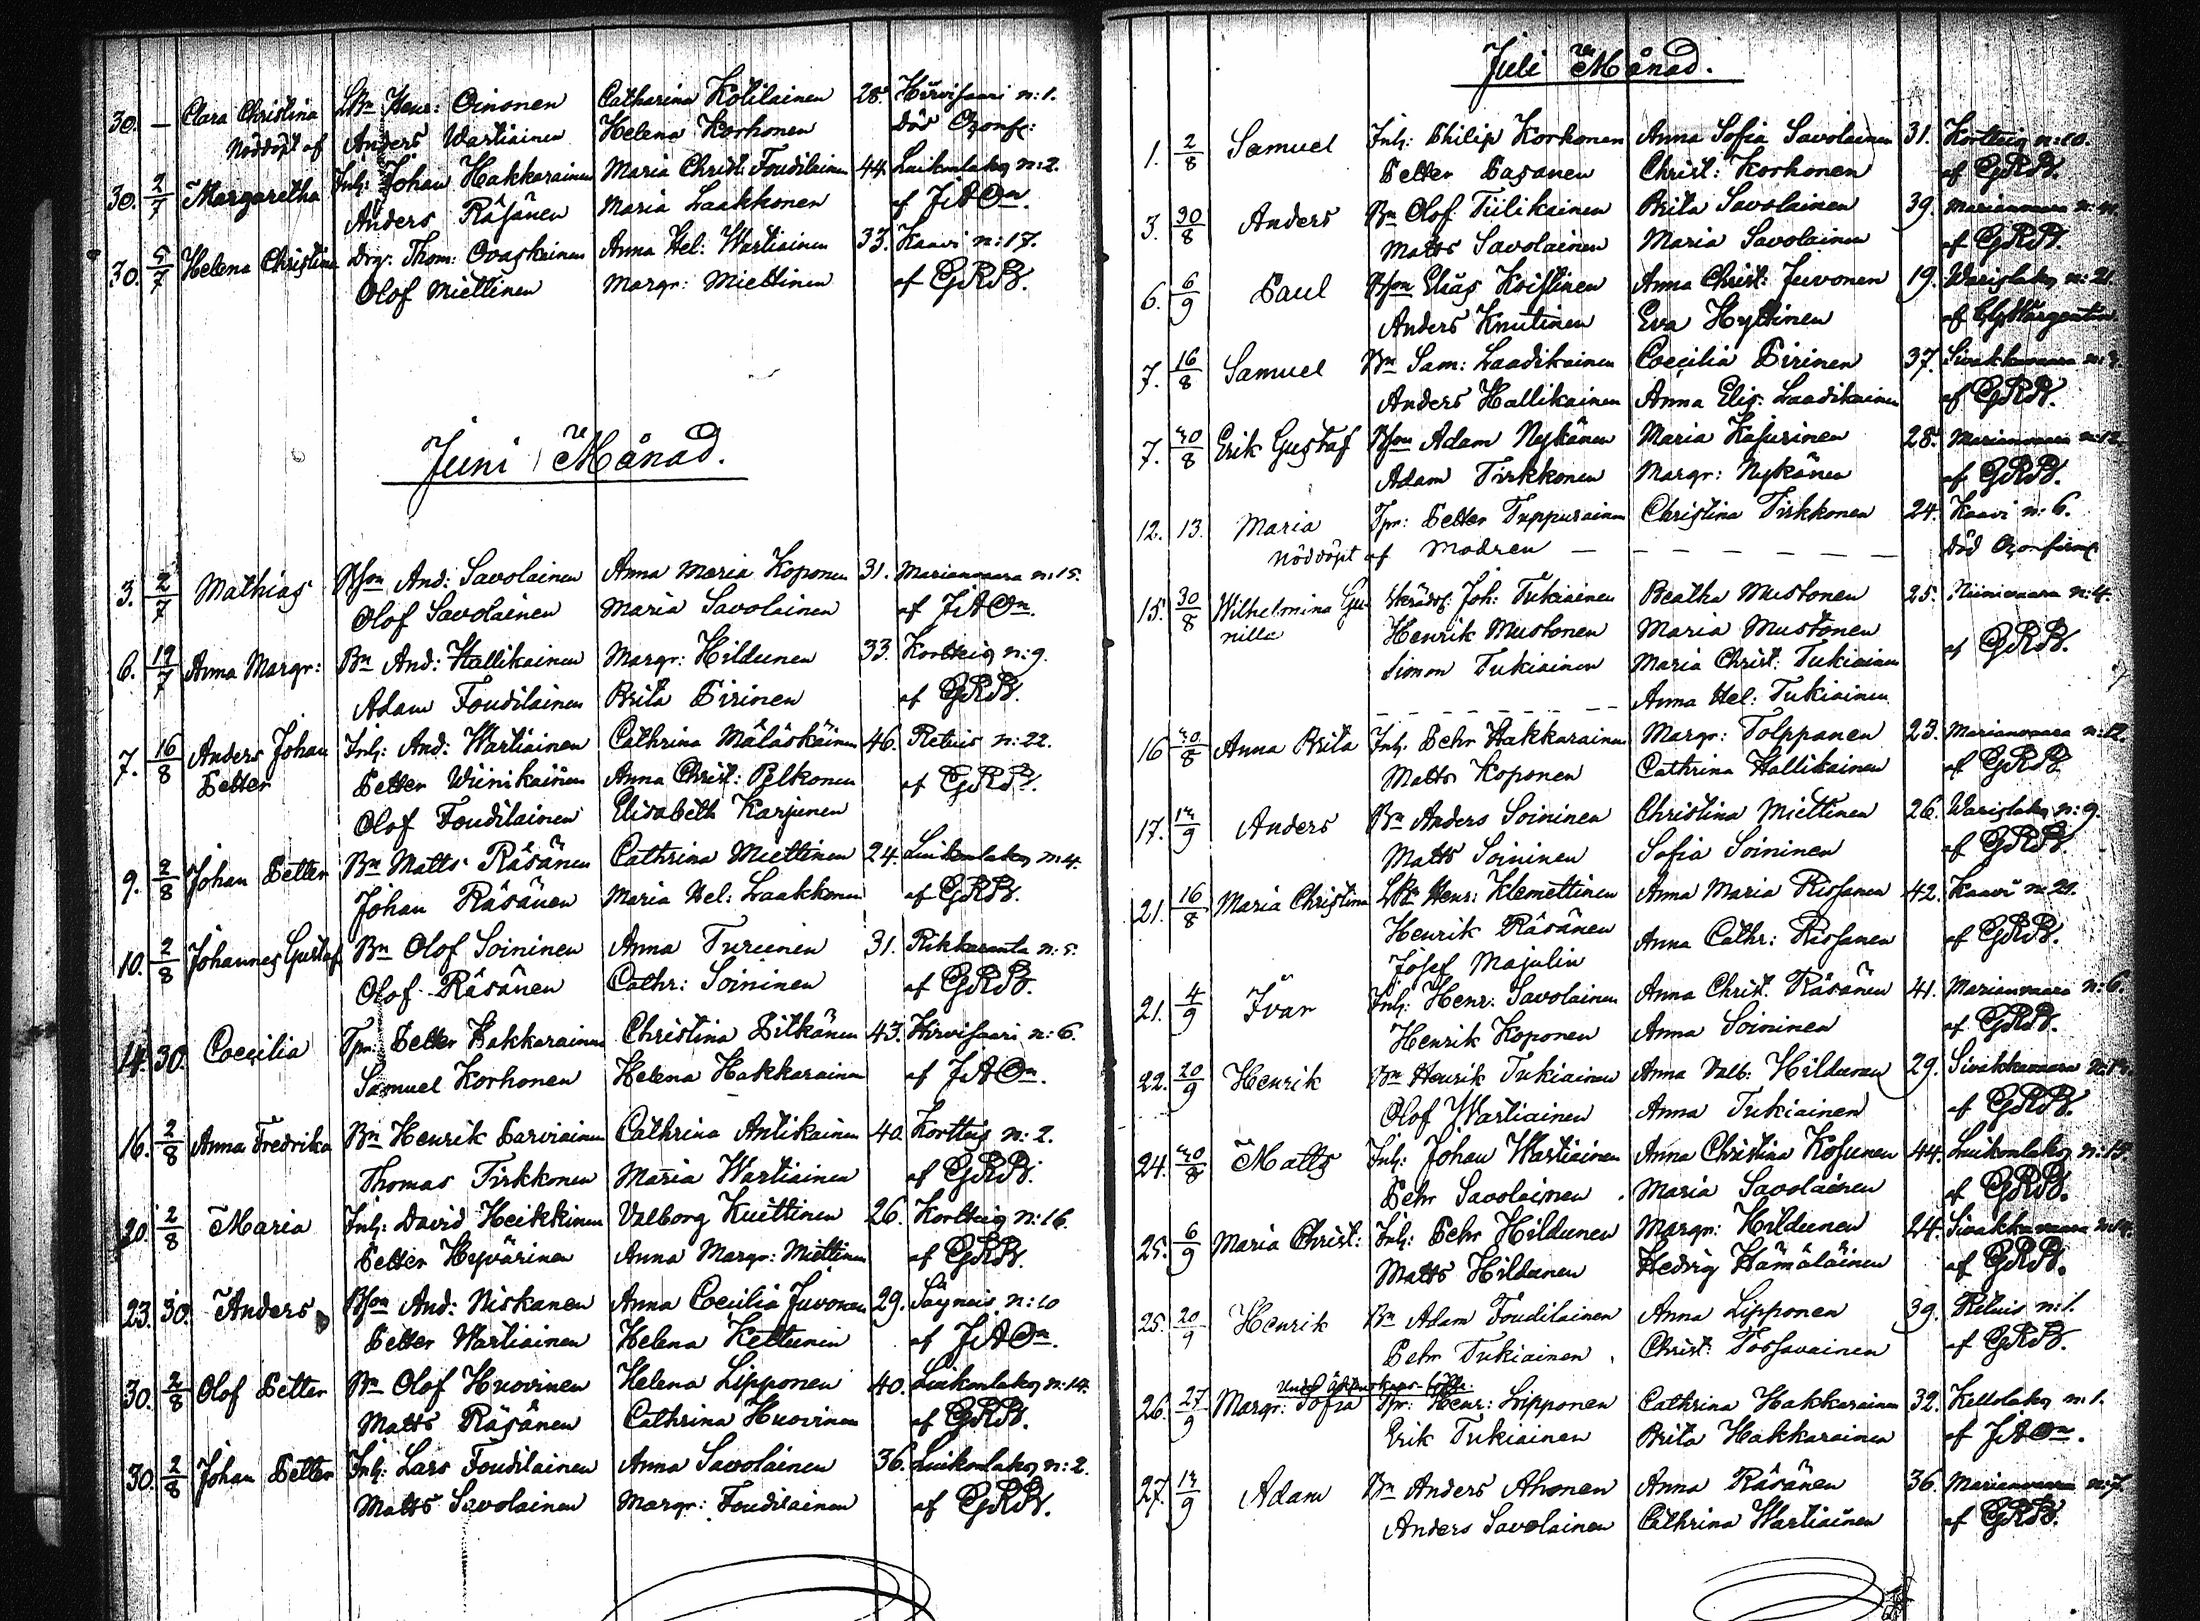 30. — Clara Christina LBn Henr: Oinonen Catharina Kotilainen 28. Hirvisaari n:1.
Nöddöpt af Anders Wartiainen Helena Korhonen Död
30. 2/7 Margaretha Inh: Johan Hakkarainen Maria Christ: Foudilainen 44. Luikonlaks n:2.
Anders Räsänen Maria Laakkonen af
30. 5/7 Helena Christina Drg: Thom: Ovaskainen Anna Hel: Wartiainen 33. Kaavi n:17.
Olof Miettinen Margr: Miettinen af
Juni Månad.
3. 2/7 Mathias And: Savolainen Anna Maria Koponen 31. Marianvaara n:15.
Olof Savolainen Maria Savolainen af
6. 19/7 Anna Margr: Bn And: Hallikainen Margr: Hildunen 33. Kortteis n:9.
Adam Foudilainen Brita Pirinen af
7. 16/8 Anders Johan Inh: And: Wartiainen Cathrina Mäläskäinen 46. Retuis n:22.
Petter Petter Wiinikainen Anna Christ: Pelkonen af
Olof Foudilainen Elisabeth Karjunen
9. 2/8 Johan Petter Bn Matts Räsänen Cathrina Miettinen 24. Luikonlaks n:4.
Johan Räsänen Maria Hel: Laakkonen af
10. 2/8 Johannes Gustaf Bn Olof Soininen Anna Turunen 31. Rikkaranta n:5.
Olof Räsänen Cathr: Soininen af
14. 30. Coecilia Tpr: Petter Hakkarainen Christina Pitkänen 43. Hirvisaari n:6.
Samuel Korhonen Helena Hakkarainen af
16. 2/8 Anna Fredrika Bn Henrik Parviainen Cathrina Antikainen 40. Kortteis n:2.
Thomas Tirkkonen Maria Wartiainen af
20. 2/8 Maria Inh: David Heikkinen Valborg Kuittinen 26. Kortteis n:16.
Petter Hyvärinen Anna Margr: Miettinen af
23. 30. Anders And: Niskanen Anna Coecilia Juvonen 29. Säyneis n:10
Petter Wartiainen Helena Kettunen af
30. 2/8 Olof Petter Bn Olof Huovinen Helena Lipponen 40. Luikonlaks n:14.
Matts Räsänen Cathrina Huovinen af
30. 2/8 Johan Petter Inh: Lars Foudilainen Anna Savolainen 36. Luikonlaks n:2.
Matts Savolainen Margr: Foudilainen af
Juli Månad.
1. 2/8 Samuel Inh: Philip Korhonen Anna Sofia Savolainen 31. Kortteis n:10.
Petter Pasanen Christ: Korhonen af
3. 30/8 Anders Bn Olof Tiilikainen Brita Savolainen 39. Marianvaara
Matts Savolainen Maria Savolainen af
6. 6/9 Paul Elias Koistinen Anna Christ: Juvonen 19. Warislaks n:21.
Anders Knutinen Eva Hyttinen af
7. 16/8 Samuel Bn Sam: Laadikainen Coecilia Pirinen 37. Sivakkavaara
Anders Hallikainen Anna Elis: Laadikainen af
7. 30/8 Erik Gustaf Adam Nykänen Maria Kasurinen 28. Marianvaara n:12.
Adam Tirkkonen Margr: Nykänen af
12. 13. Maria Tpr: Petter Tuppurainen Christina Tirkkonen 24. Kaavi n:6.
Nöddöpt af Modren — — — — — — Död
15. 30/8 Wilhelmina Gu- Joh: Tukiainen Beatha Mustonen 25. Niinivaara n:4.
nilla Henrik Mustonen Maria Mustonen af
Simon Tukiainen Maria Christ: Tukiainen
Anna Hel: Tukiainen
16 30/8 Anna Brita Inh: Pehr Hakkarainen Margr: Tolppanen 23. Marianvaara n:12.
Matts Koponen Cathrina Hallikainen af
17. 13/9 Anders Bn Anders Soininen Christina Miettinen 26. Warislaks n:9.
Matts Soininen Sofia Soininen af
21. 16/8 Maria Christina LBn Henr: Klemettinen Anna Maria Rissanen 42. Kaavi n:21.
Henrik Räsänen Anna Cathr: Rissanen af
Josef Majulin
21. 4/9 Ivar Inh: Henr: Savolainen Anna Christ: Räsänen 41. Marianvaara n:6.
Henrik Koponen Anna Soininen af
22. 20/9 Henrik Bn Henrik Tukiainen Anna Valb: Hildunen 29. Sivakkavaara
Olof Wartiainen Anna Tukiainen af
24. 30/8 Matts Inh: Johan Wartiainen Anna Christina Kosunen 44. Luikonlaks n:15.
Pehr Savolainen Maria Savolainen af
25. 6/9 Maria Christ: Inh: Pehr Hildunen Margr: Hildunen 24. Sivakkavaara
Matts Hildunen Hedvig Hämäläinen af
25. 20/9 Henrik Bn Adam Foudilainen Anna Lipponen 39. Retuis n:1.
Pehr Tukiainen Christ: Tossavainen af
26. 27/9 Margr: Sofia Tpr: Henr: Lipponen Cathrina Hakkarainen 32. Kellolaks n:1.
Erik Tukiainen Brita Hakkarainen af
27. 13/9 Adam Bn Anders Ahonen Anna Räsänen 36. Marianvaara n:7.
Anders Savolainen Cathrina Wartiainen af